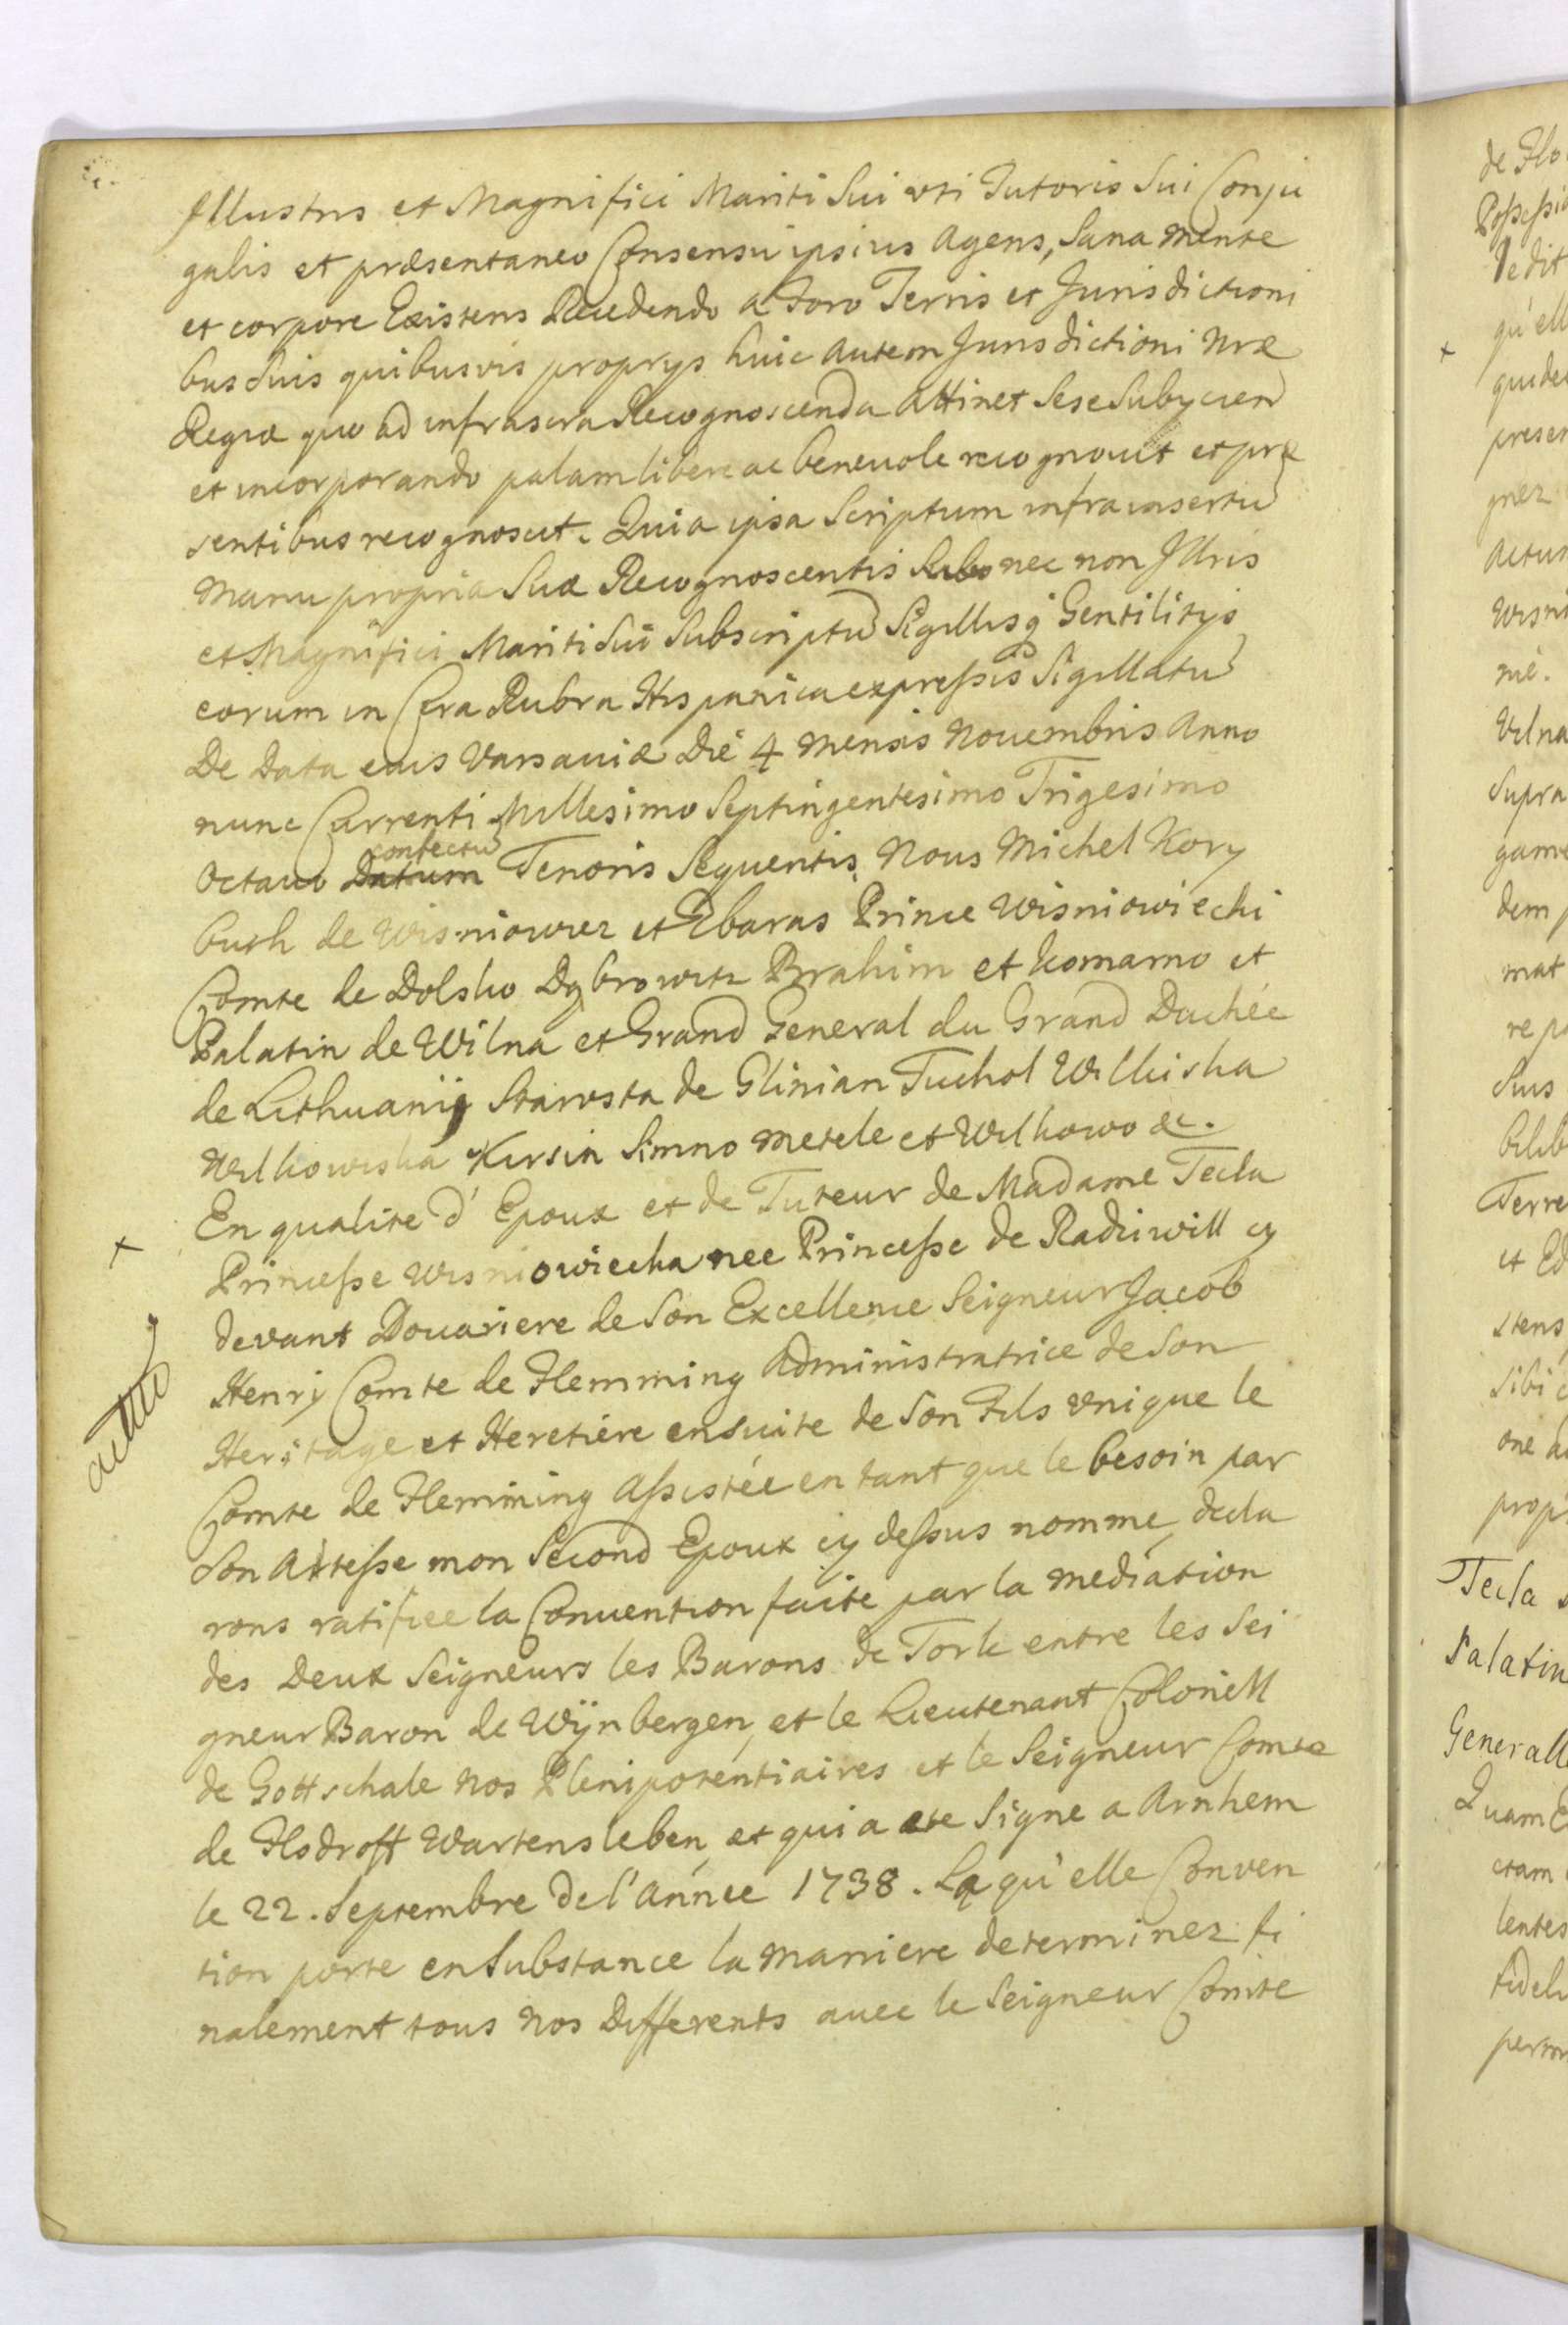 Illustris et Magnifici Mariti Sui uti Tutoris Sui Conju
galis et præsentaneo Consensu ipsius Agens, Sana mente
et corpore Existens Recedendo a Foro Terris et Jurisdictioni
bus Suis quibusvis proprys huic autem Jurisdictioni Nræ
Regiæ quo ad infrascra Recognoscenda attinet Sese Subycien
et incorporando palam libere ac benevole recognovit et præ
sentibus recognoscit. Quia ipsa Scriptum infra insertu
manu propria Suæ Recognoscentis nec non Illris
et Magnifici Mariti Sui Subscriptu Sigillisq Gentilitys
eorum in Cera Rubra Hispanica expressis Sigillatu
De Data eius Varsaviæ Die 4 mensis Novembris Anno
nunc Currenti Millesimo Septingentesimo Trigesimo
confectu
Octavo Datum Tenoris Sequentis. Nous Michel Kory
buth de Wisniowiec et Zbaras Prince Wisniowiecki
Comte de Dolsko Dąbrowitz Brahim et Komarno et
Palatin de Wilna et Grand General du Grand Duchée
de Lithuanij Starosta de Glinian Tuchol Wilkiska
Wilkowiska Kirsin Simno Metele et Wilkowo &c.
En qualite d' Epoux et de Tuteur de Madame Tecla
Princesse Wisniowiecka nee Princesse de Radziwill cy
devant Douariere de Son Excellence Seigneur Jacob
Henry Comte de Flemming Administratrice de Son
Heritage et Heretiére ensuite de Son Fils Unique le
Comte de Flemming Assistée en tant que le besoin par
Son Altesse mon Second Epoux cy dessus nommé decla
rons ratifiee la Convention faite par la mediation
des Deux Seigneurs les Barons de Tork entre les Sei
gneur Baron de Wÿnbergen, et le Lieutenant Colonell
de Gottschalc nos Plenipotentiaires et le Seigneur Comte
de Flodroff Wartensleben, et qui a ete Signe a Arnhem
le 22. Septembre de l'année 1738. La qu'elle Conven
tion porte en Substance la maniere determinez fi
nalement tous nos Differents avec le Seigneur Comte
+
de Flo
Possessio
dedit
qu'ell
+
quide
presen
gnez
Actum
Wisni
mè.
Vilna
Supra
game
dem p
mat
re po
Suis
bilib
Terre
et Ed
stens
Sibi c
one a
prop
Tecla
Palatin
Generall
Quam E
etam
lentes
fideli
perm